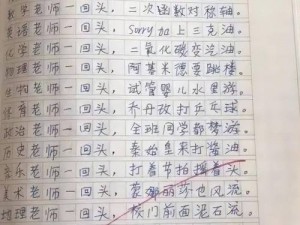 数学老师一回头，二次函数对称轴。
英语老师一回头，sorry加上三克油。
化学老师一回头，二氧化碳变汽油。
物理老师一回头，阿基米德要跳楼。
生物老师一回头，试管婴儿水里游。
体育老师一回头，乔丹改打乒乓球。
政治老师一回头，全班同学都梦游。
历史老师一回头，秦始皇来打酱油。
音乐老师一回头，打着节拍摇着头。
美术老师一回头，蒙娜丽莎也风流。
地理老师一回头，校门前面泥石流。